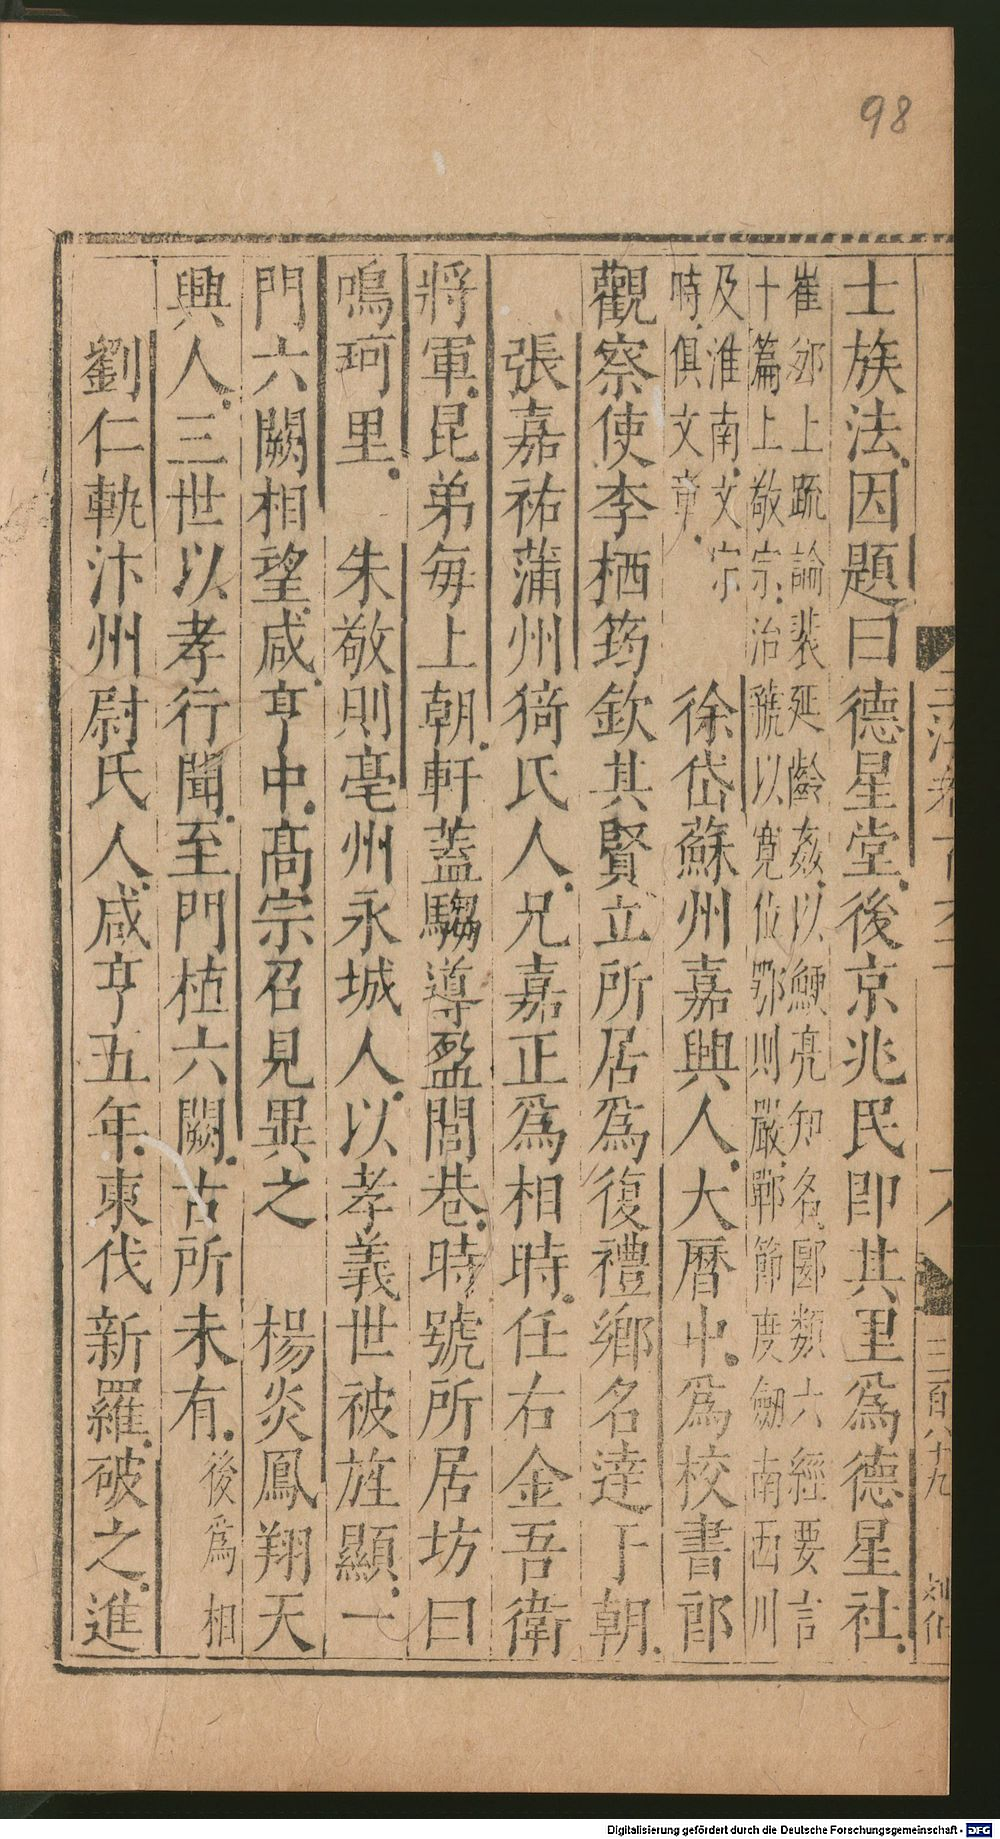 98
士族法因題曰德星堂後京兆民即其里爲德星社
崔郊上疏論裴延齡姦以鯁亮知名郾類六經要言
十篇上敬宗治虢以寬位鄂則嚴鄲節度劒南西川
及淮南文宗
時俱文章
徐岱蘇州嘉興人大曆中爲校書郎
觀察使李栖筠欽其賢立所居爲復禮鄉名達于朝
張嘉祐蒲州猗氏人兄嘉正爲相時任右金吾衛
將軍昆弟每上朝軒蓋騶導盈閭巷時號所居坊曰
鳴珂里 朱敬則亳州永城人以孝義世被旌顯一
門六闕相望咸亨中高宗召見異之 楊炎鳳翔天
興人三世以孝行聞至門植六闕古所未有後爲相
劉仁軌汴州尉氏人咸亨五年東伐新羅破之進
三百八十九
Digitalisierung gefördert durch die Deutsche Forschungsgemeinschaft - DFG